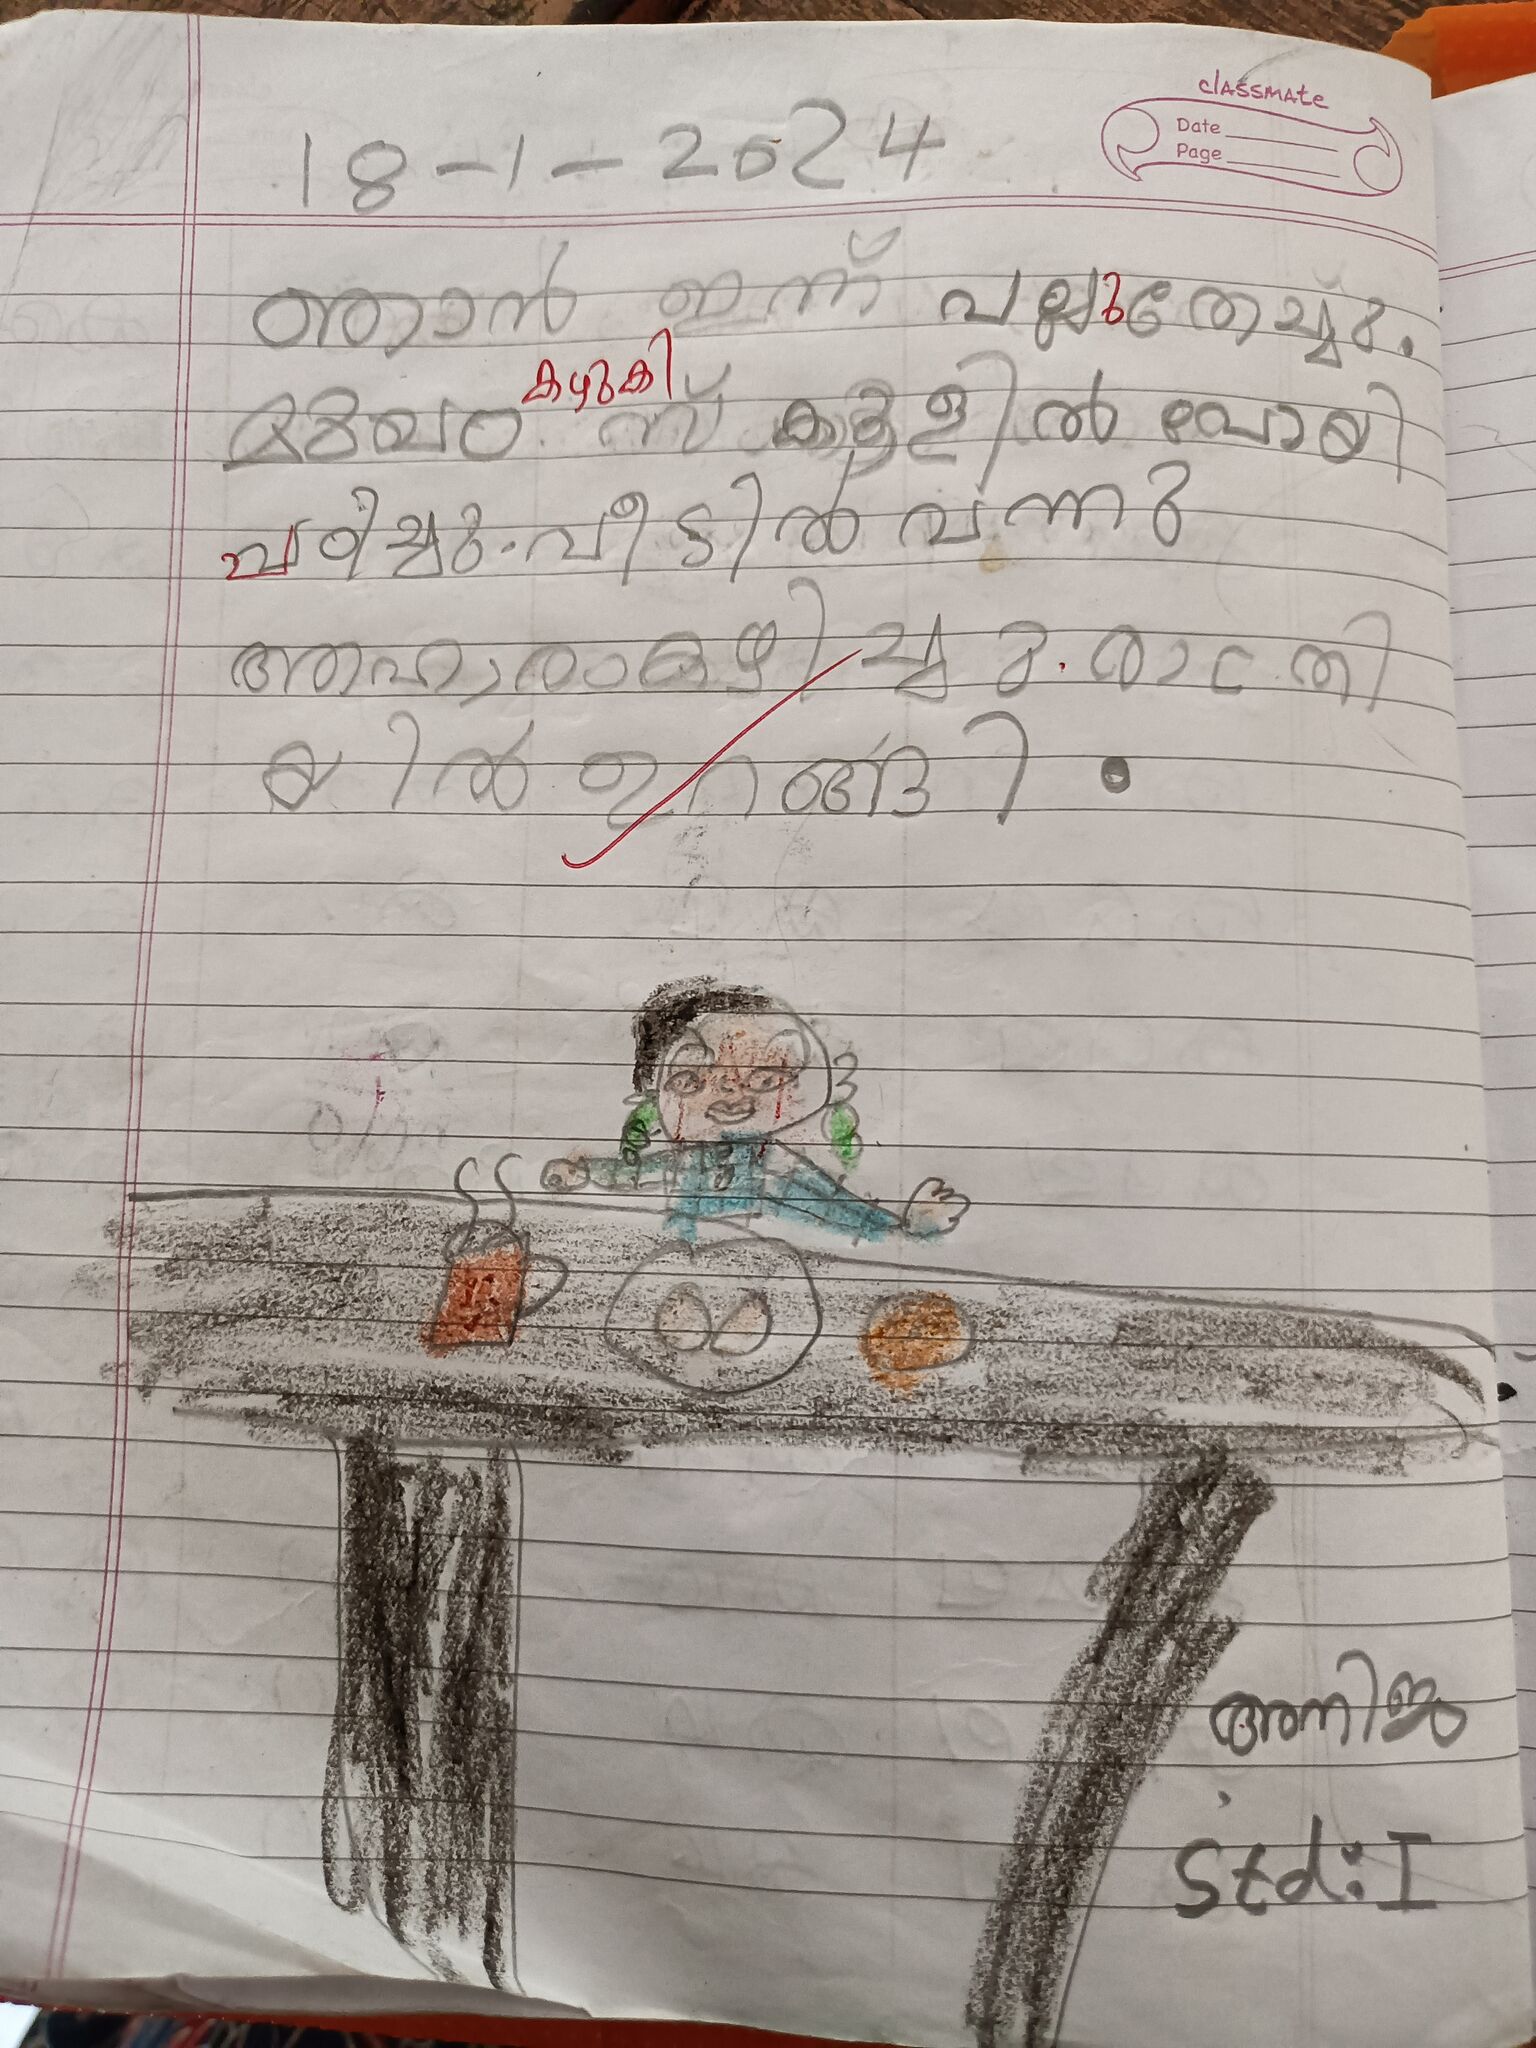 classmate
Date
Page
18-1-2024
ഞാൻ ഇന്ന് പല്ലുതേച്ചു.
കഴുകി
മുഖം. സ്കൂളിൽ പോയി
പഠിച്ചു. വീട്ടിൽ വന്നു
ആഹാരംകഴിച്ചു. രാത്രി
യിൽ ഉറങ്ങി.
Std: I